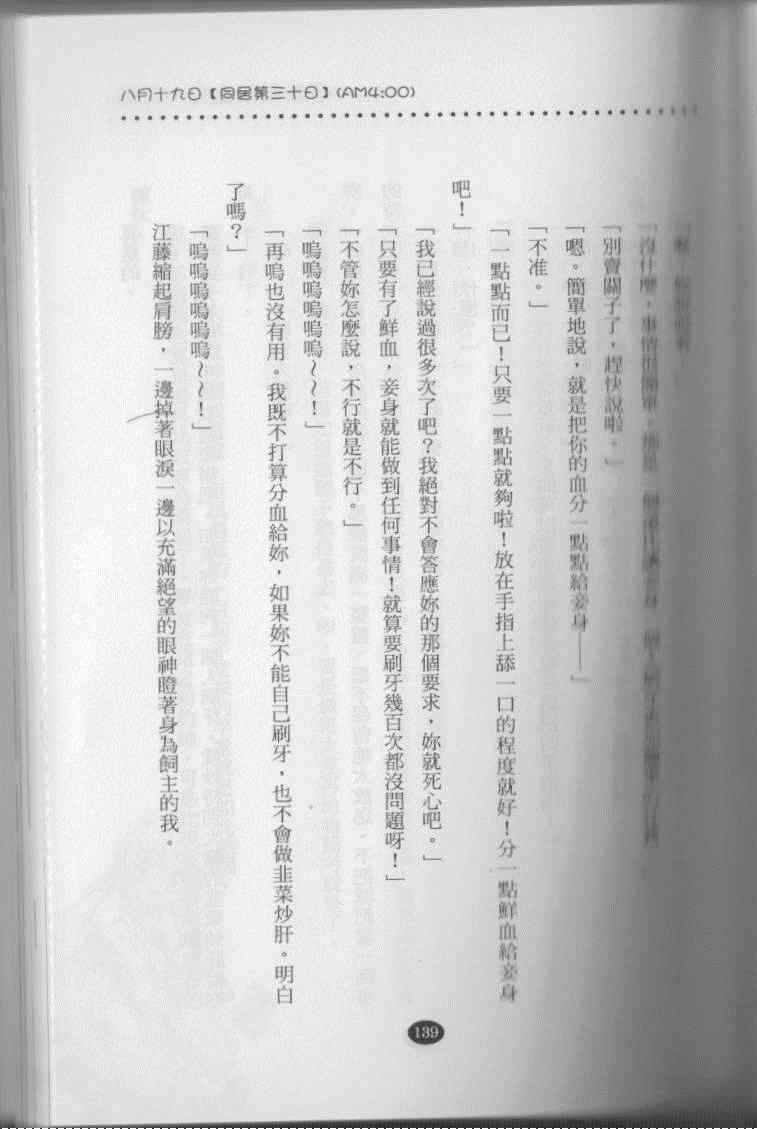 八月十九日【同居第三十日】(AM4:00)
「沒什麼，事情很簡單。
「別賣關子了，趕快說啦。」
「嗯。簡單地說，就是把你的血分一點點給妾身——」
「不准。」
「一點點而已！只要一點點就夠啦！放在手指上舔一口的程度就好！分一點鮮血給妾身
吧！」
「我已經說過很多次了吧？我絕對不會答應妳的那個要求，妳就死心吧。」
「只要有了鮮血，妾身就能做到任何事情！就算要刷牙幾百次都沒問題呀！」
「不管妳怎麼說，不行就是不行。」
「嗚嗚嗚嗚嗚嗚～～！」
「再嗚也沒有用。我既不打算分血給妳，如果妳不能自己刷牙，也不會做韭菜炒肝。明白
了嗎？」
「嗚嗚嗚嗚嗚嗚～～！」
江藤縮起肩膀，一邊掉著眼淚一邊以充滿絕望的眼神瞪著身為飼主的我。
139